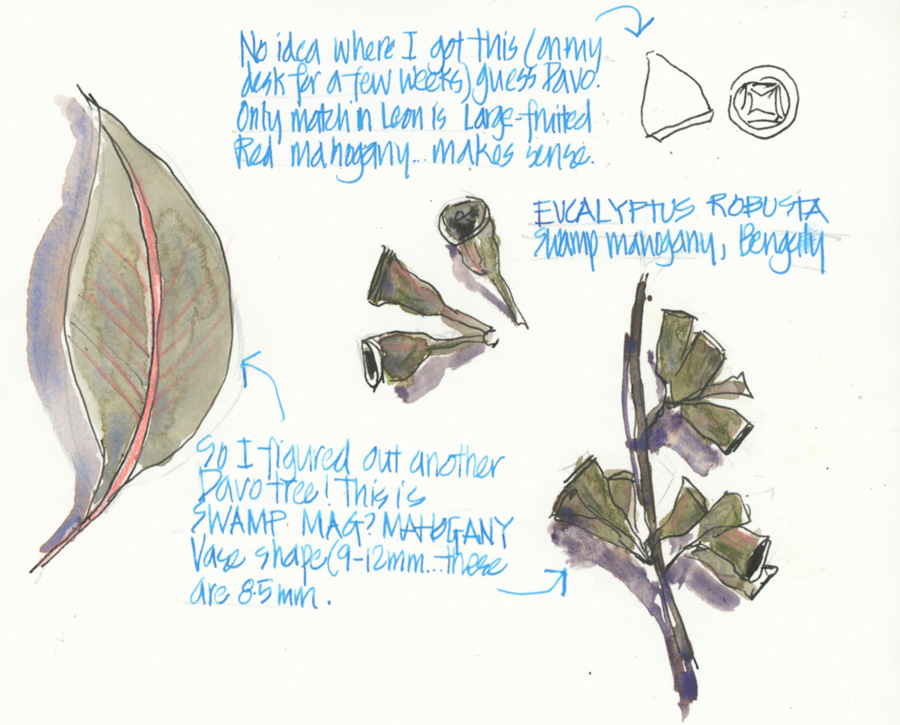 No idea where I got this (on my
desk for a few weeks) guess Davo.
Only match in Leon is Large-fruited
Red mahogany... makes sense.
EUCALYPTUS ROBUSTA
Swamp mahogany, Bengally
So I figured out another
Davo tree! This is
SWAMP MAG? MAHOGANY
Vase shape (9-12mm...these
are 8.5mm.